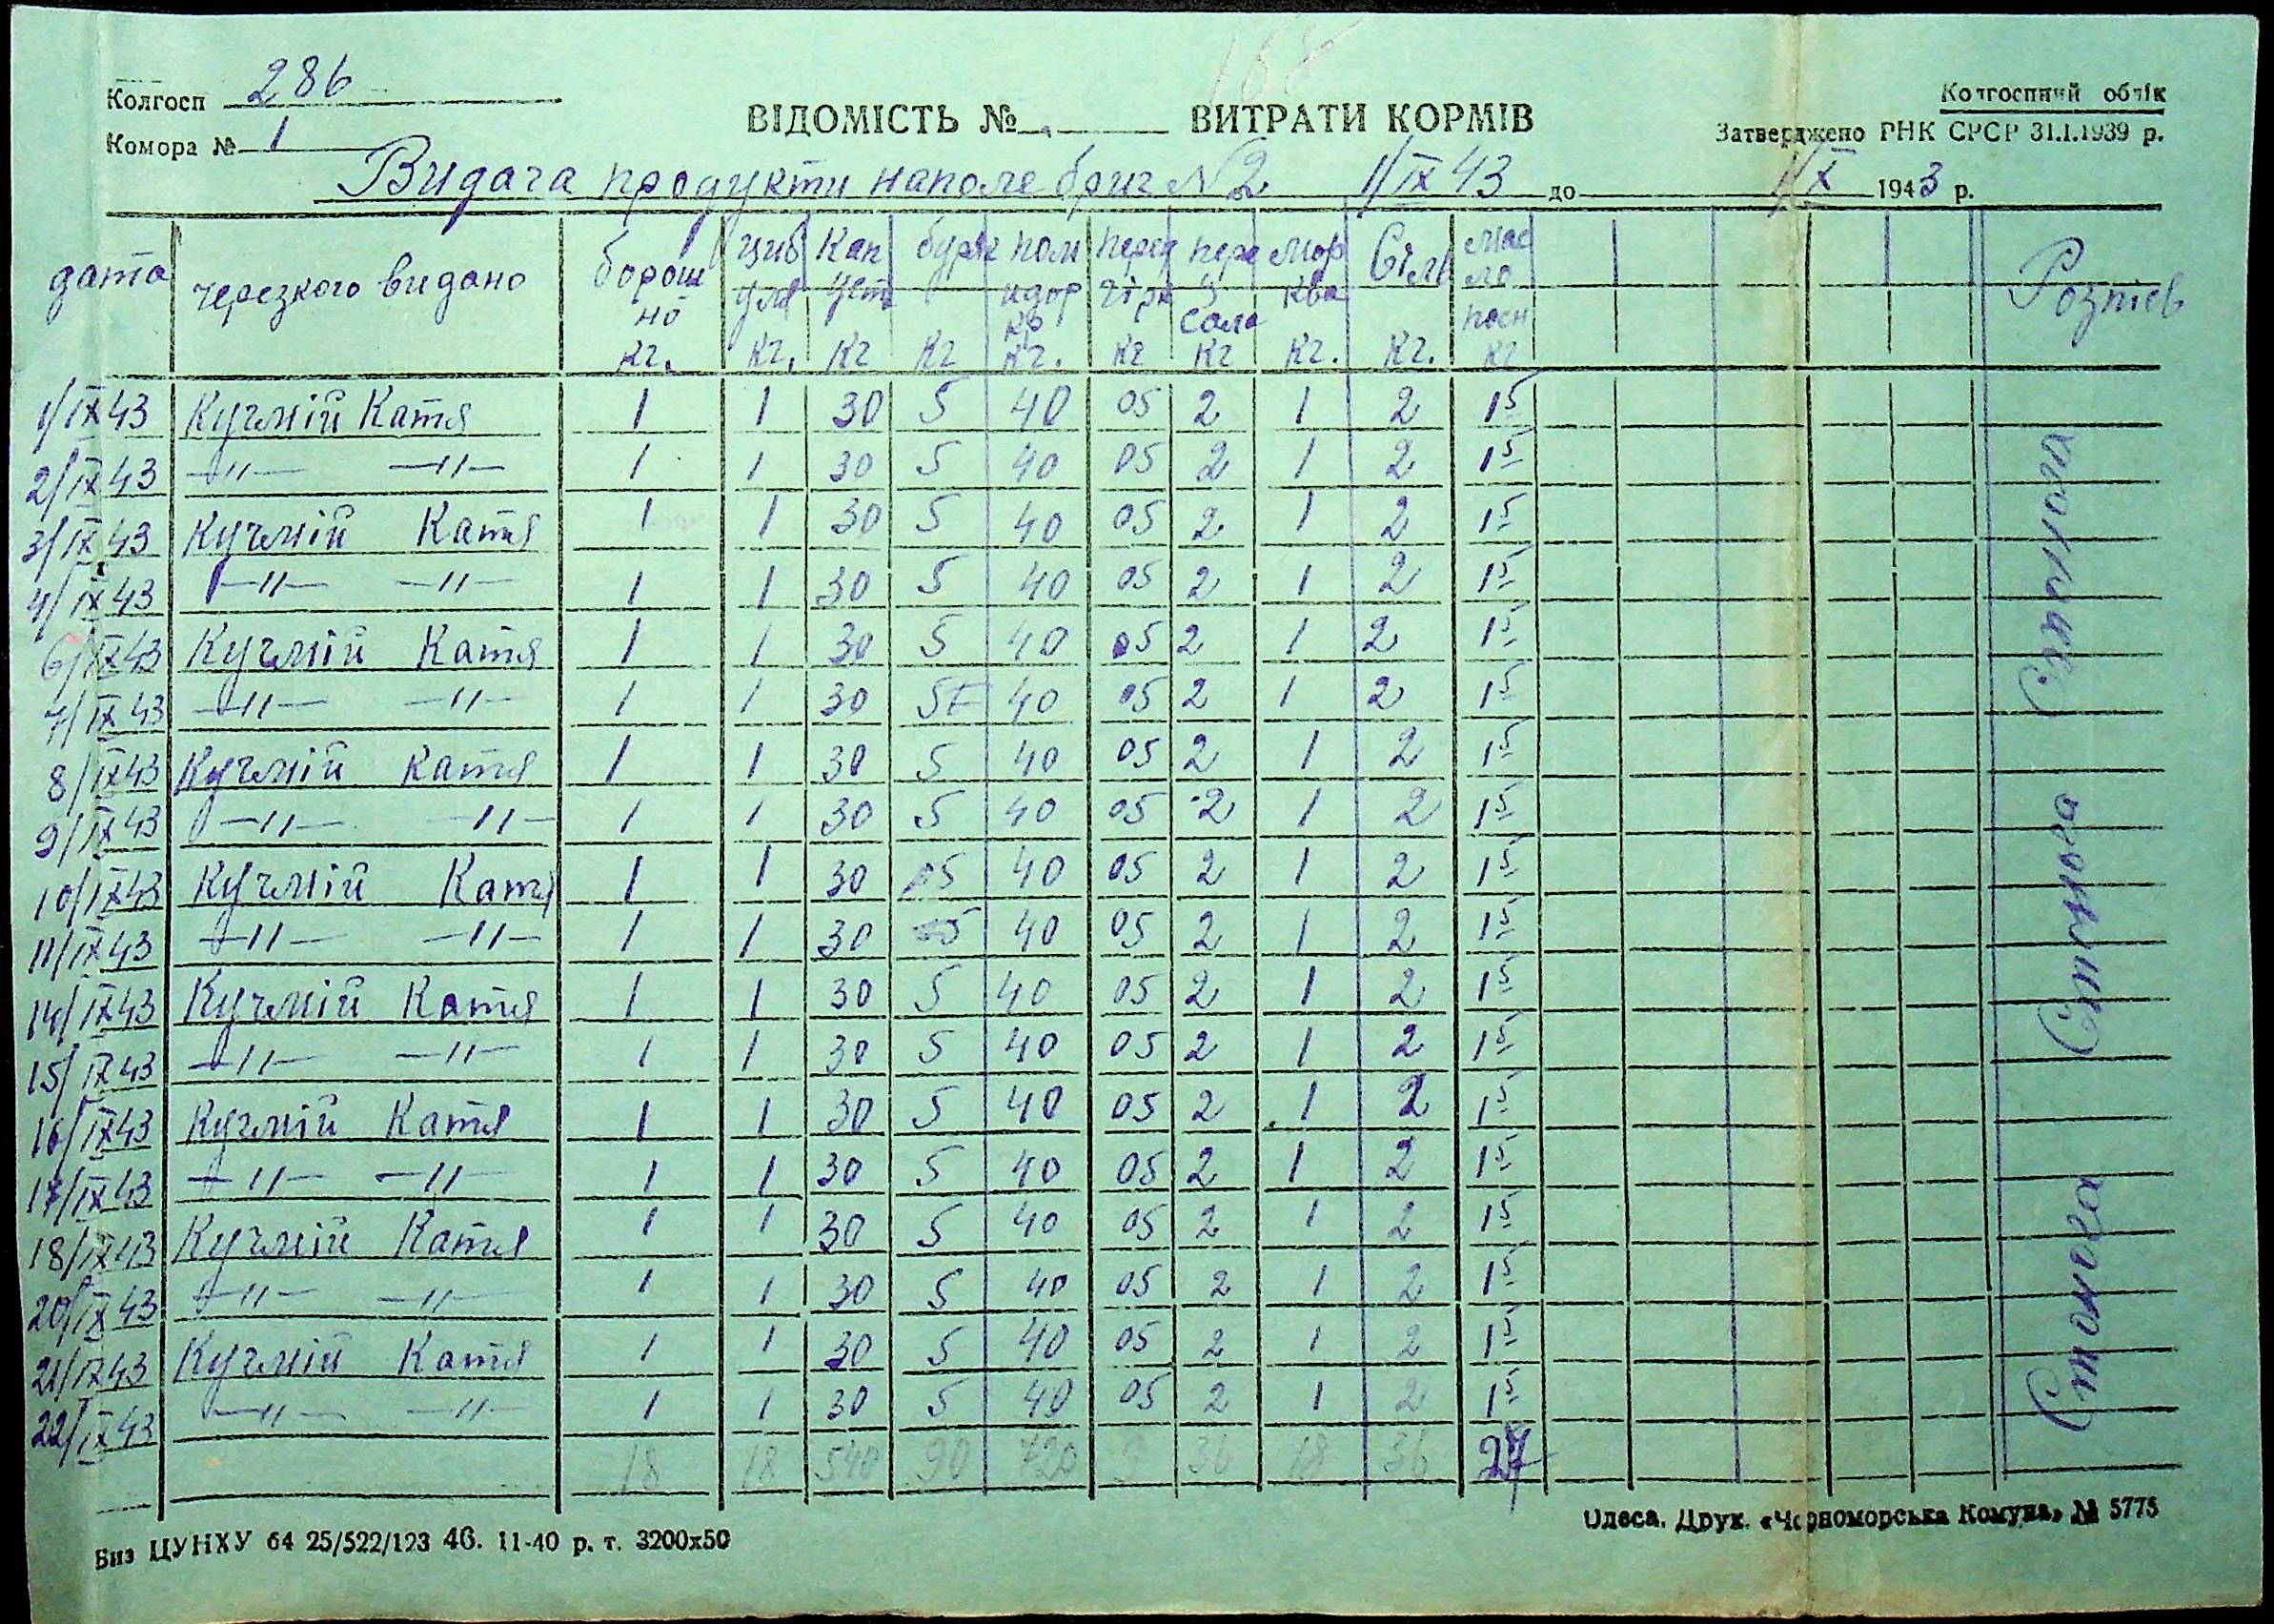 168
Колгосп 286
Колгоспний облік
ВІДОМІСТЬ № ВИТРАТИ КОРМІВ
Затверджено РНК СРСР 31.I.1939 р.
Комора № 1
Видача продукти наполе бриг №2 1/IX 43 до 1/X 1943 р.
дата черезкого видано борошно кг. цибуля кг. капуст кг буряк кг помидор кр кг. перец гірк кг перец сала кг морква кг. Сіль кг. масло посн кг Розпісь
1/IX 43 Кучмій Катя 1 1 30 5 40 05 2 1 2 15
2/IX 43 —〃— —〃— 1 1 30 5 40 05 2 1 2 15
3/IX 43 Кучмій Катя 1 1 30 5 40 05 2 1 2 15
4/IX 43 —〃— —〃— 1 1 30 5 40 05 2 1 2 15
6/IX 43 Кучмій Катя 1 1 30 5 40 05 2 1 2 15
7/IX 43 —〃— —〃— 1 1 30 5 40 05 2 1 2 15
8/IX 43 Кучмій Катя 1 1 30 5 40 05 2 1 2 15
9/IX 43 —〃— —〃— 1 1 30 5 40 05 2 1 2 15
10/IX 43 Кучмій Катя 1 1 30 05 40 05 2 1 2 15
11/IX 43 —〃— —〃— 1 1 30 5 40 05 2 1 2 15
14/IX 43 Кучмій Катя 1 1 30 5 40 05 2 1 2 15
15/IX 43 —〃— —〃— 1 1 30 5 40 05 2 1 2 15
16/IX 43 Кучмій Катя 1 1 30 5 40 05 2 1 2 15
17/IX 43 —〃— —〃— 1 1 30 5 40 05 2 1 2 15
18/IX 43 Кучмій Катя 1 1 30 5 40 05 2 1 2 15
20/IX 43 —〃— —〃— 1 1 30 5 40 05 2 1 2 15
21/IX 43 Кучмій Катя 1 1 30 5 40 05 2 1 2 15
22/IX 43 —〃— —〃— 1 1 30 5 40 05 2 1 2 15
18 18 540 90 720 9 36 18 36 27
Одеса. Друк. «Чорноморська Комуна» № 5775
Биз ЦУНХУ 64 25/522/123 46. 11-40 р. т. 3200х50